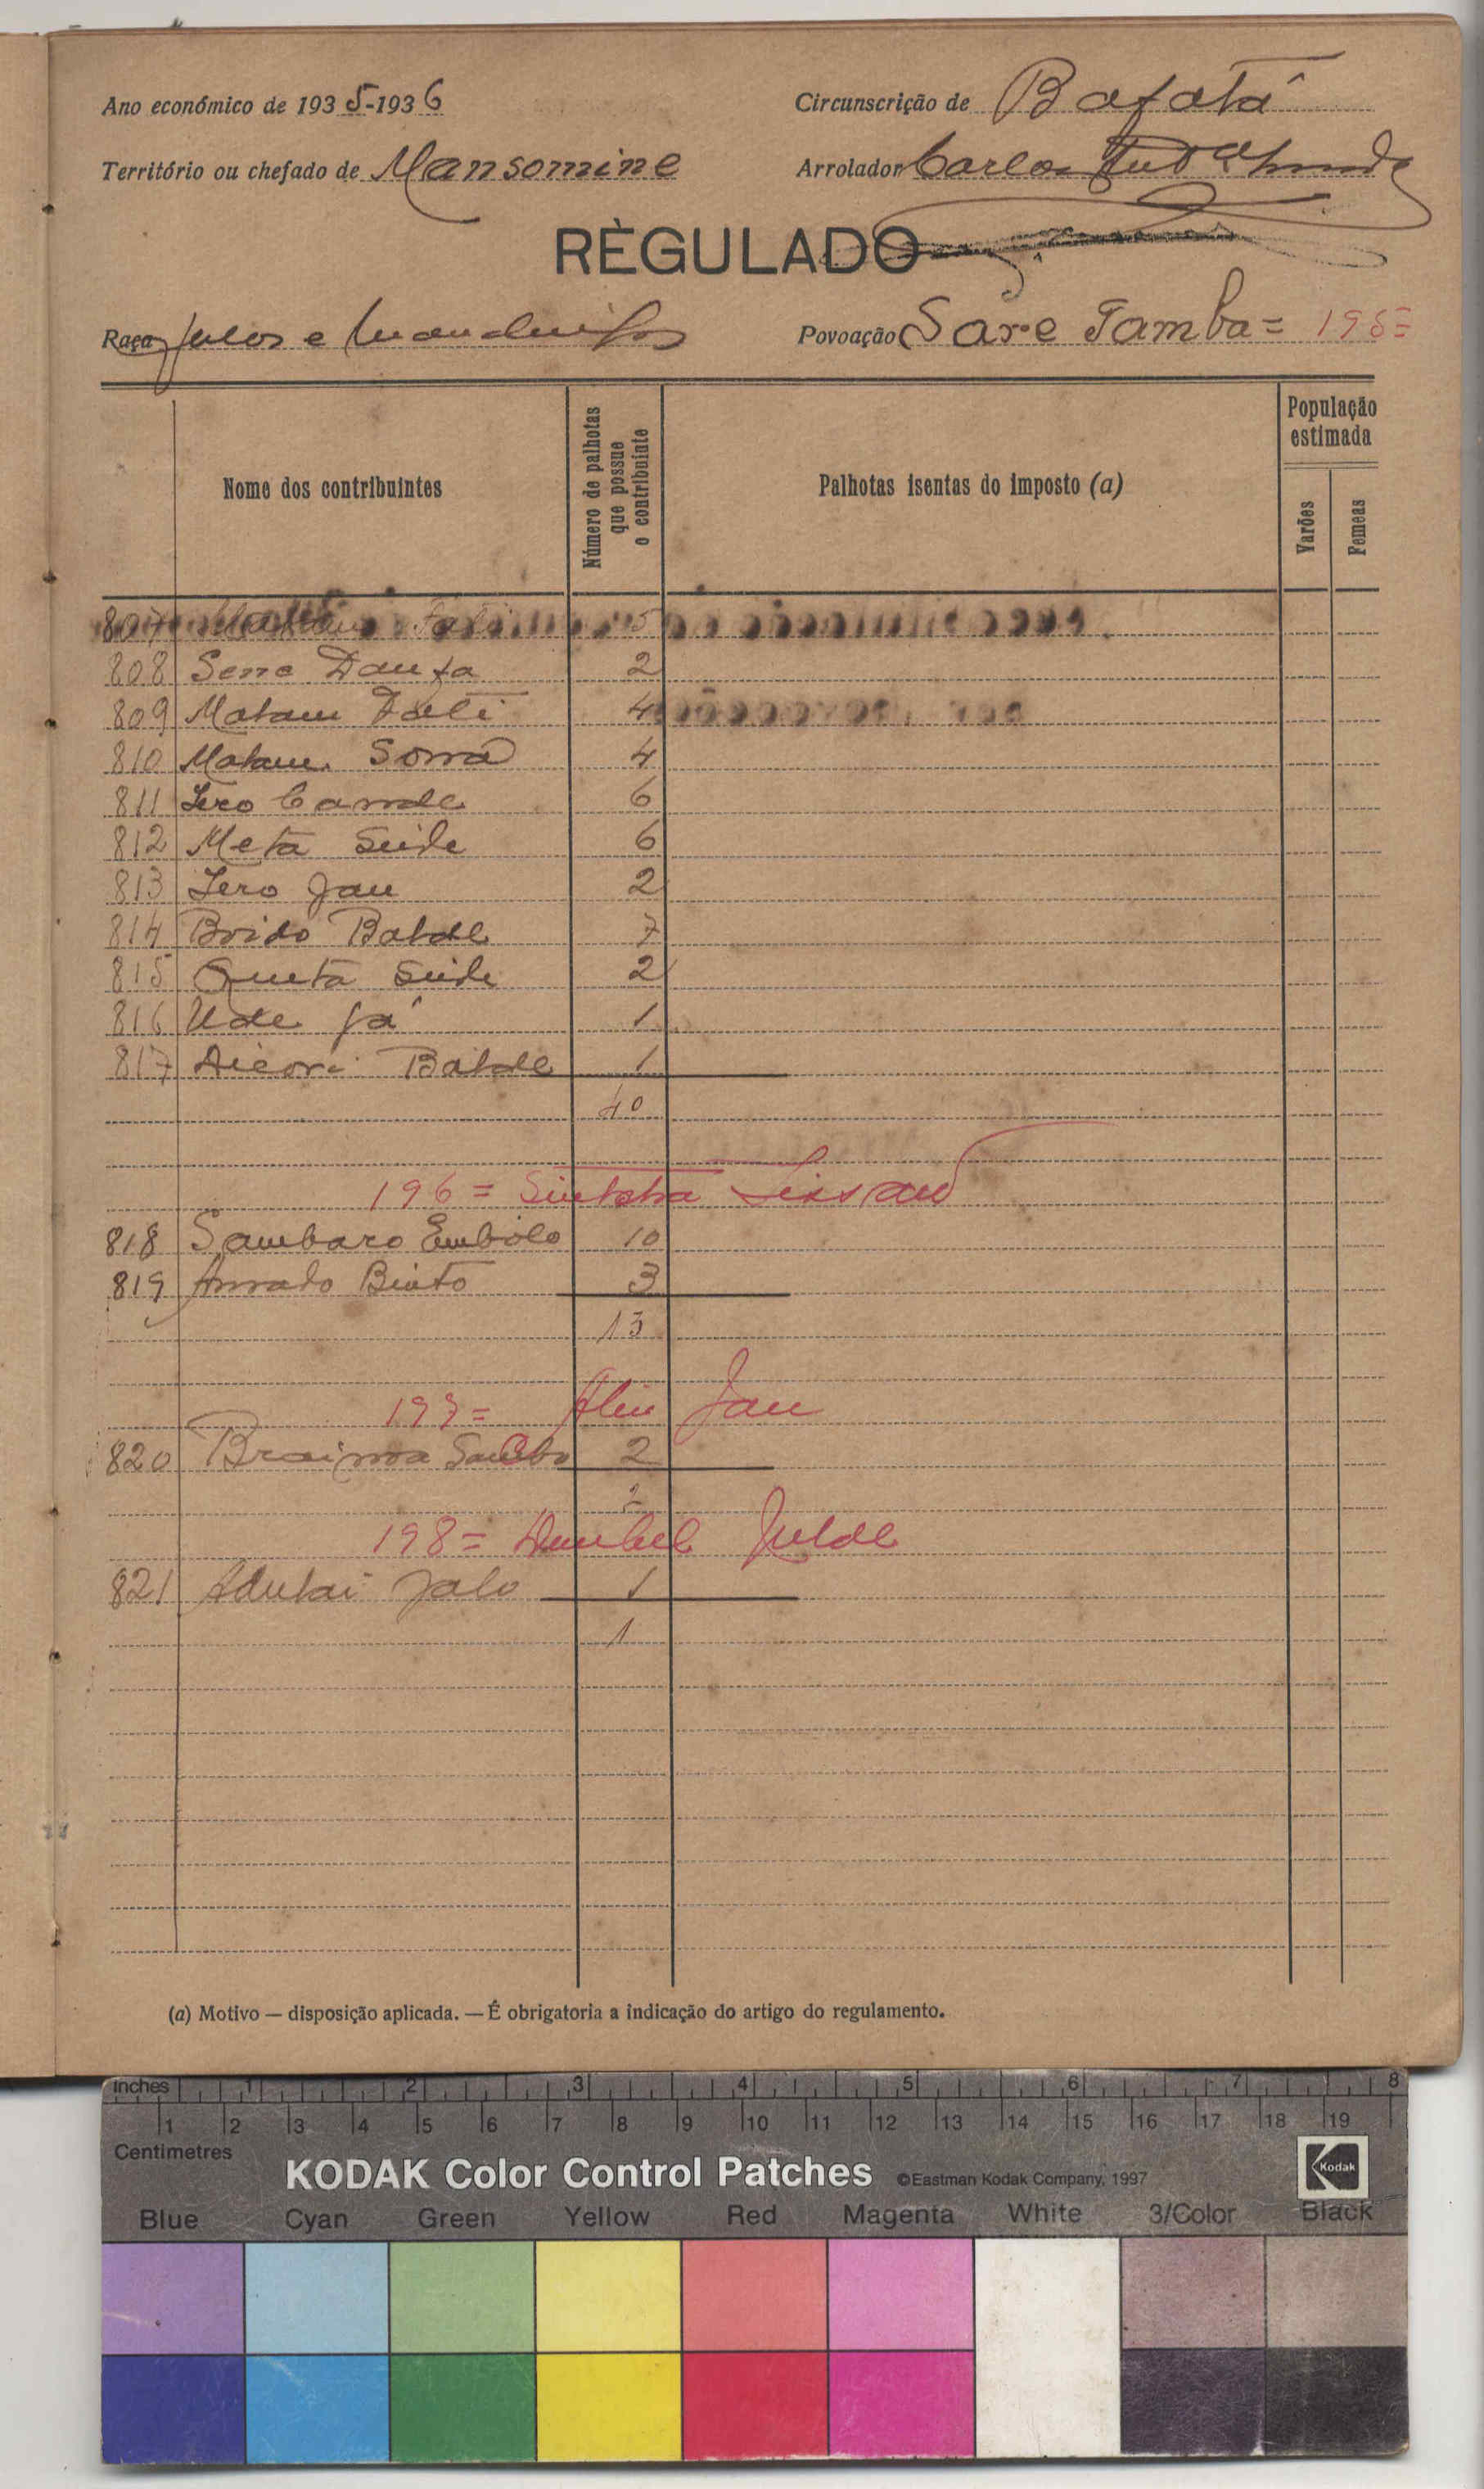 Ano económico de 1935-1936
Circunscrição de Bafatá
Território ou chefado de Mansomine
Arrolador Carlos
RÈGULADO
Raça fulos e mandingos
Povoação Sare Tamba = 195=
Nome dos contribuintes
Número de palhotas que possue o contribuinte
Palhotas isentas do imposto (a)
População estimada
Varões
Femeas
807 5
808 Sene Danfa 2
809 Malam Fati 4
810 Malam Soma 4
811 Tero Camde 6
812 Meta Seide 6
813 Tero Jau 2
814 Brido Balde 7
815 Queta Seide 2
816 Ude Já 1
817 Balde 1
40
196 =
818 Sambaro Embalo 10
819 Amado 3
13
197 = Aliu Jau
820 Braima 2
2
198 = Julde
821 Adulai Jalo 1
1
(a) Motivo — disposição aplicada. — É obrigatoria a indicação do artigo do regulamento.
inches 1 2 3 4 5 6 7 8
1 2 3 4 5 6 7 8 9 10 11 12 13 14 15 16 17 18 19
Centimetres
KODAK Color Control Patches ©Eastman Kodak Company, 1997 Kodak
Blue Cyan Green Yellow Red Magenta White 3/Color Black